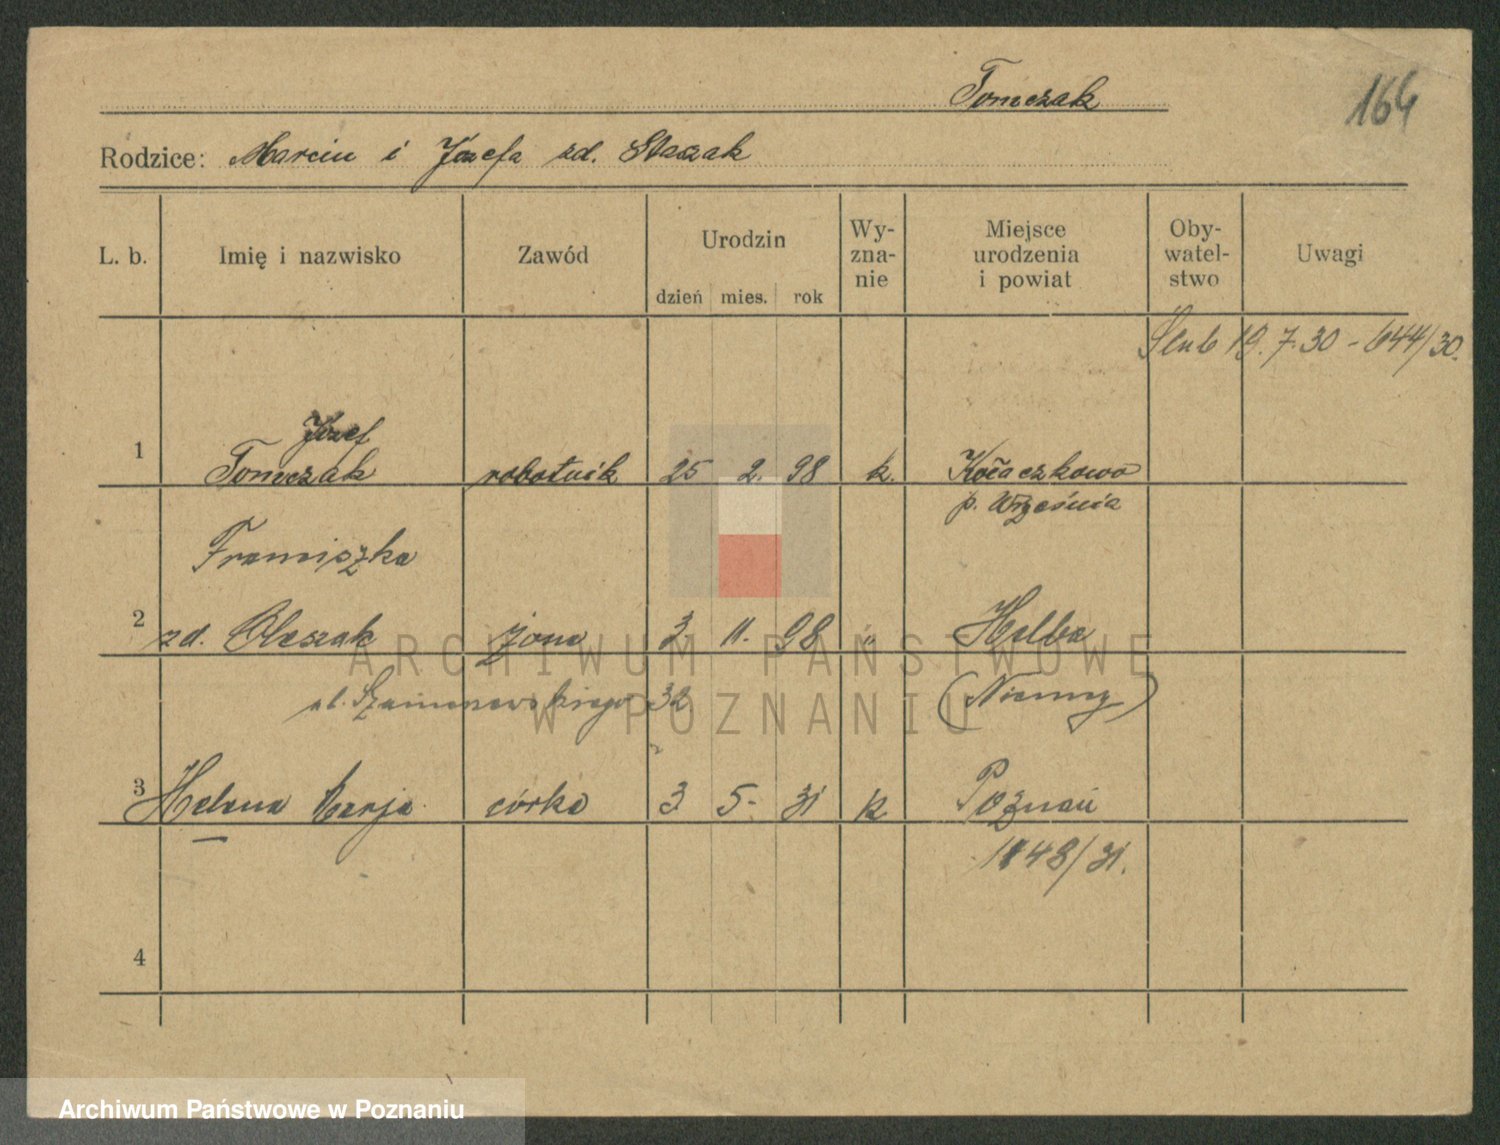 Tomczak
164
Rodzice: Marcin i Józefa zd. Staszak
L. b. Imię i nazwisko Zawód Urodzin dzień mies. rok Wy-zna-nie Miejsce urodzenia i powiat Oby-watel-stwo Uwagi
Ślub 19.7.30 - 644/30.
Józef
1 Tomczak robotnik 25 2. 98 k. Kołaczkowo
p. Września
Franciszka
2 zd. Oleszak żona 3 11. 98 " Helba
ul. 32 (Niemcy)
3 Helena Marja córka 3 5- 31 k Poznań
1148/31.
4
ARCHIWUM PAŃSTWOWE
W POZNANIU
Archiwum Państwowe w Poznaniu